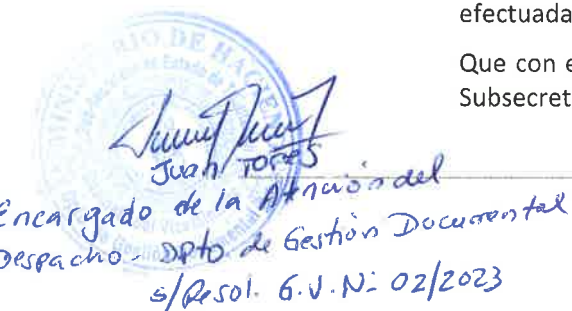 efectuada
Que con e
Subsecret
MINISTERIO DE HACIEN
Juan Torres
Encargado de la Atención del
Despacho - Dpto. de Gestión Documental
s/Resol. G.V. N° 02/2023